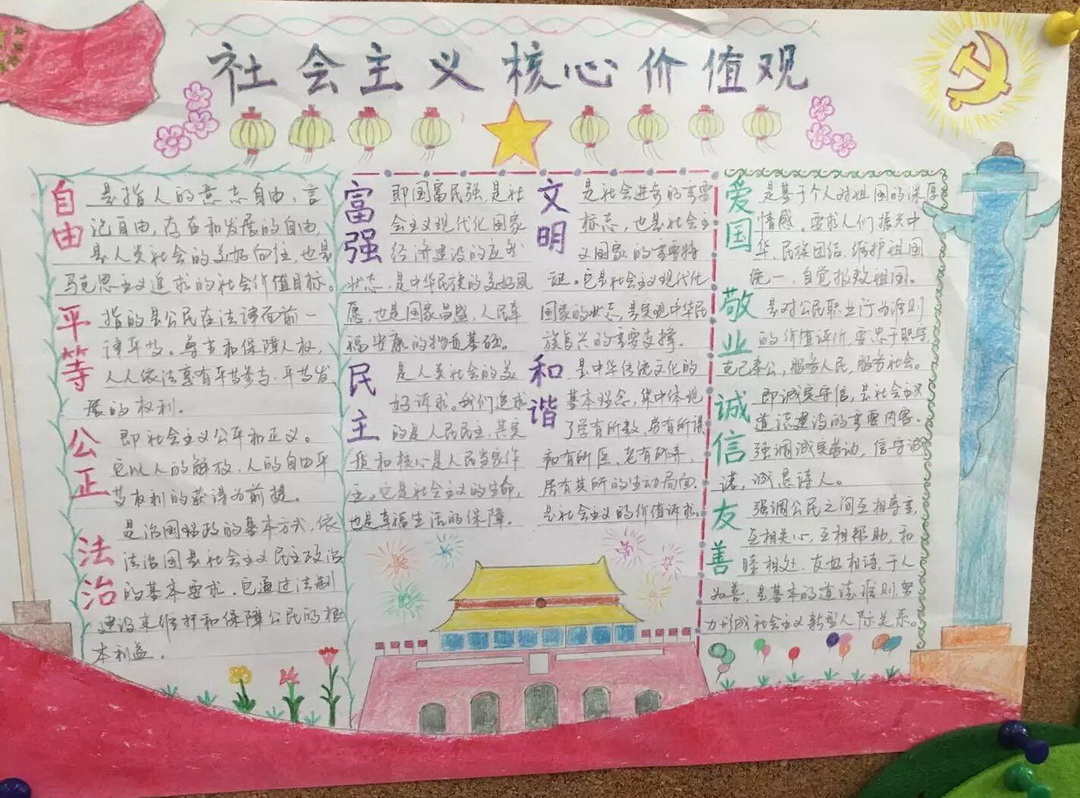 社会主义核心价值观
自由
是指人的意志自由,言
论自由,存在和发展的自由,
是人类社会的美好向往,也是
马克思主义追求的社会价值目标。
平等
指的是公民在法律面前一
律平等。尊重和保障人权,
人人依法享有平等参与,平等发
展的权利.
公正
即社会主义公平和正义。
它以人的解放,人的自由平
等权利的获得为前提。
法治
是治国理政的基本方式,依
法治国是社会主义民主政治
的基本要求,它通过法制
建设来维护和保障公民的根
本利益.
富强
即国富民强,是社
会主义现代化国家
经济建设的应然
状态,是中华民族的美好夙
愿,也是国家昌盛,人民幸
福安康的物质基础。
民主
是人类社会的美
好诉求。我们追求
的是人民民主,其实
质和核心是人民当家作
主。它是社会主义的生命,
也是幸福生活的保障.
文明
是社会进步的重要
标志,也是社会主
义国家的重要特
征,它是社会主义现代化
国家的状态,是实现中华民
族复兴的重要支撑.
和谐
是中华传统文化的
基本理念,集中体现
了学有所教,劳有所得
病有所医,老有所养,
居有其所的生动局面,
是社会主义的价值诉求.
爱国
是基于个人对祖国的深厚
情感,要求人们振兴中
华,民族团结,维护祖国
统一,自觉报效祖国.
敬业
是对公民职业行为准则
的价值评价,要忠于职守
克己奉公,服务人民,服务社会。
诚信
即诚实守信,是社会主义
道德建设的重要内容.
强调诚实劳动,信守承
诺,诚恳待人。
友善
强调公民之间互相尊重,
互相关心,互相帮助,和
睦相处,友好相待,于人
如善,是基本的道德准则,努
力形成社会主义新型人际关系。